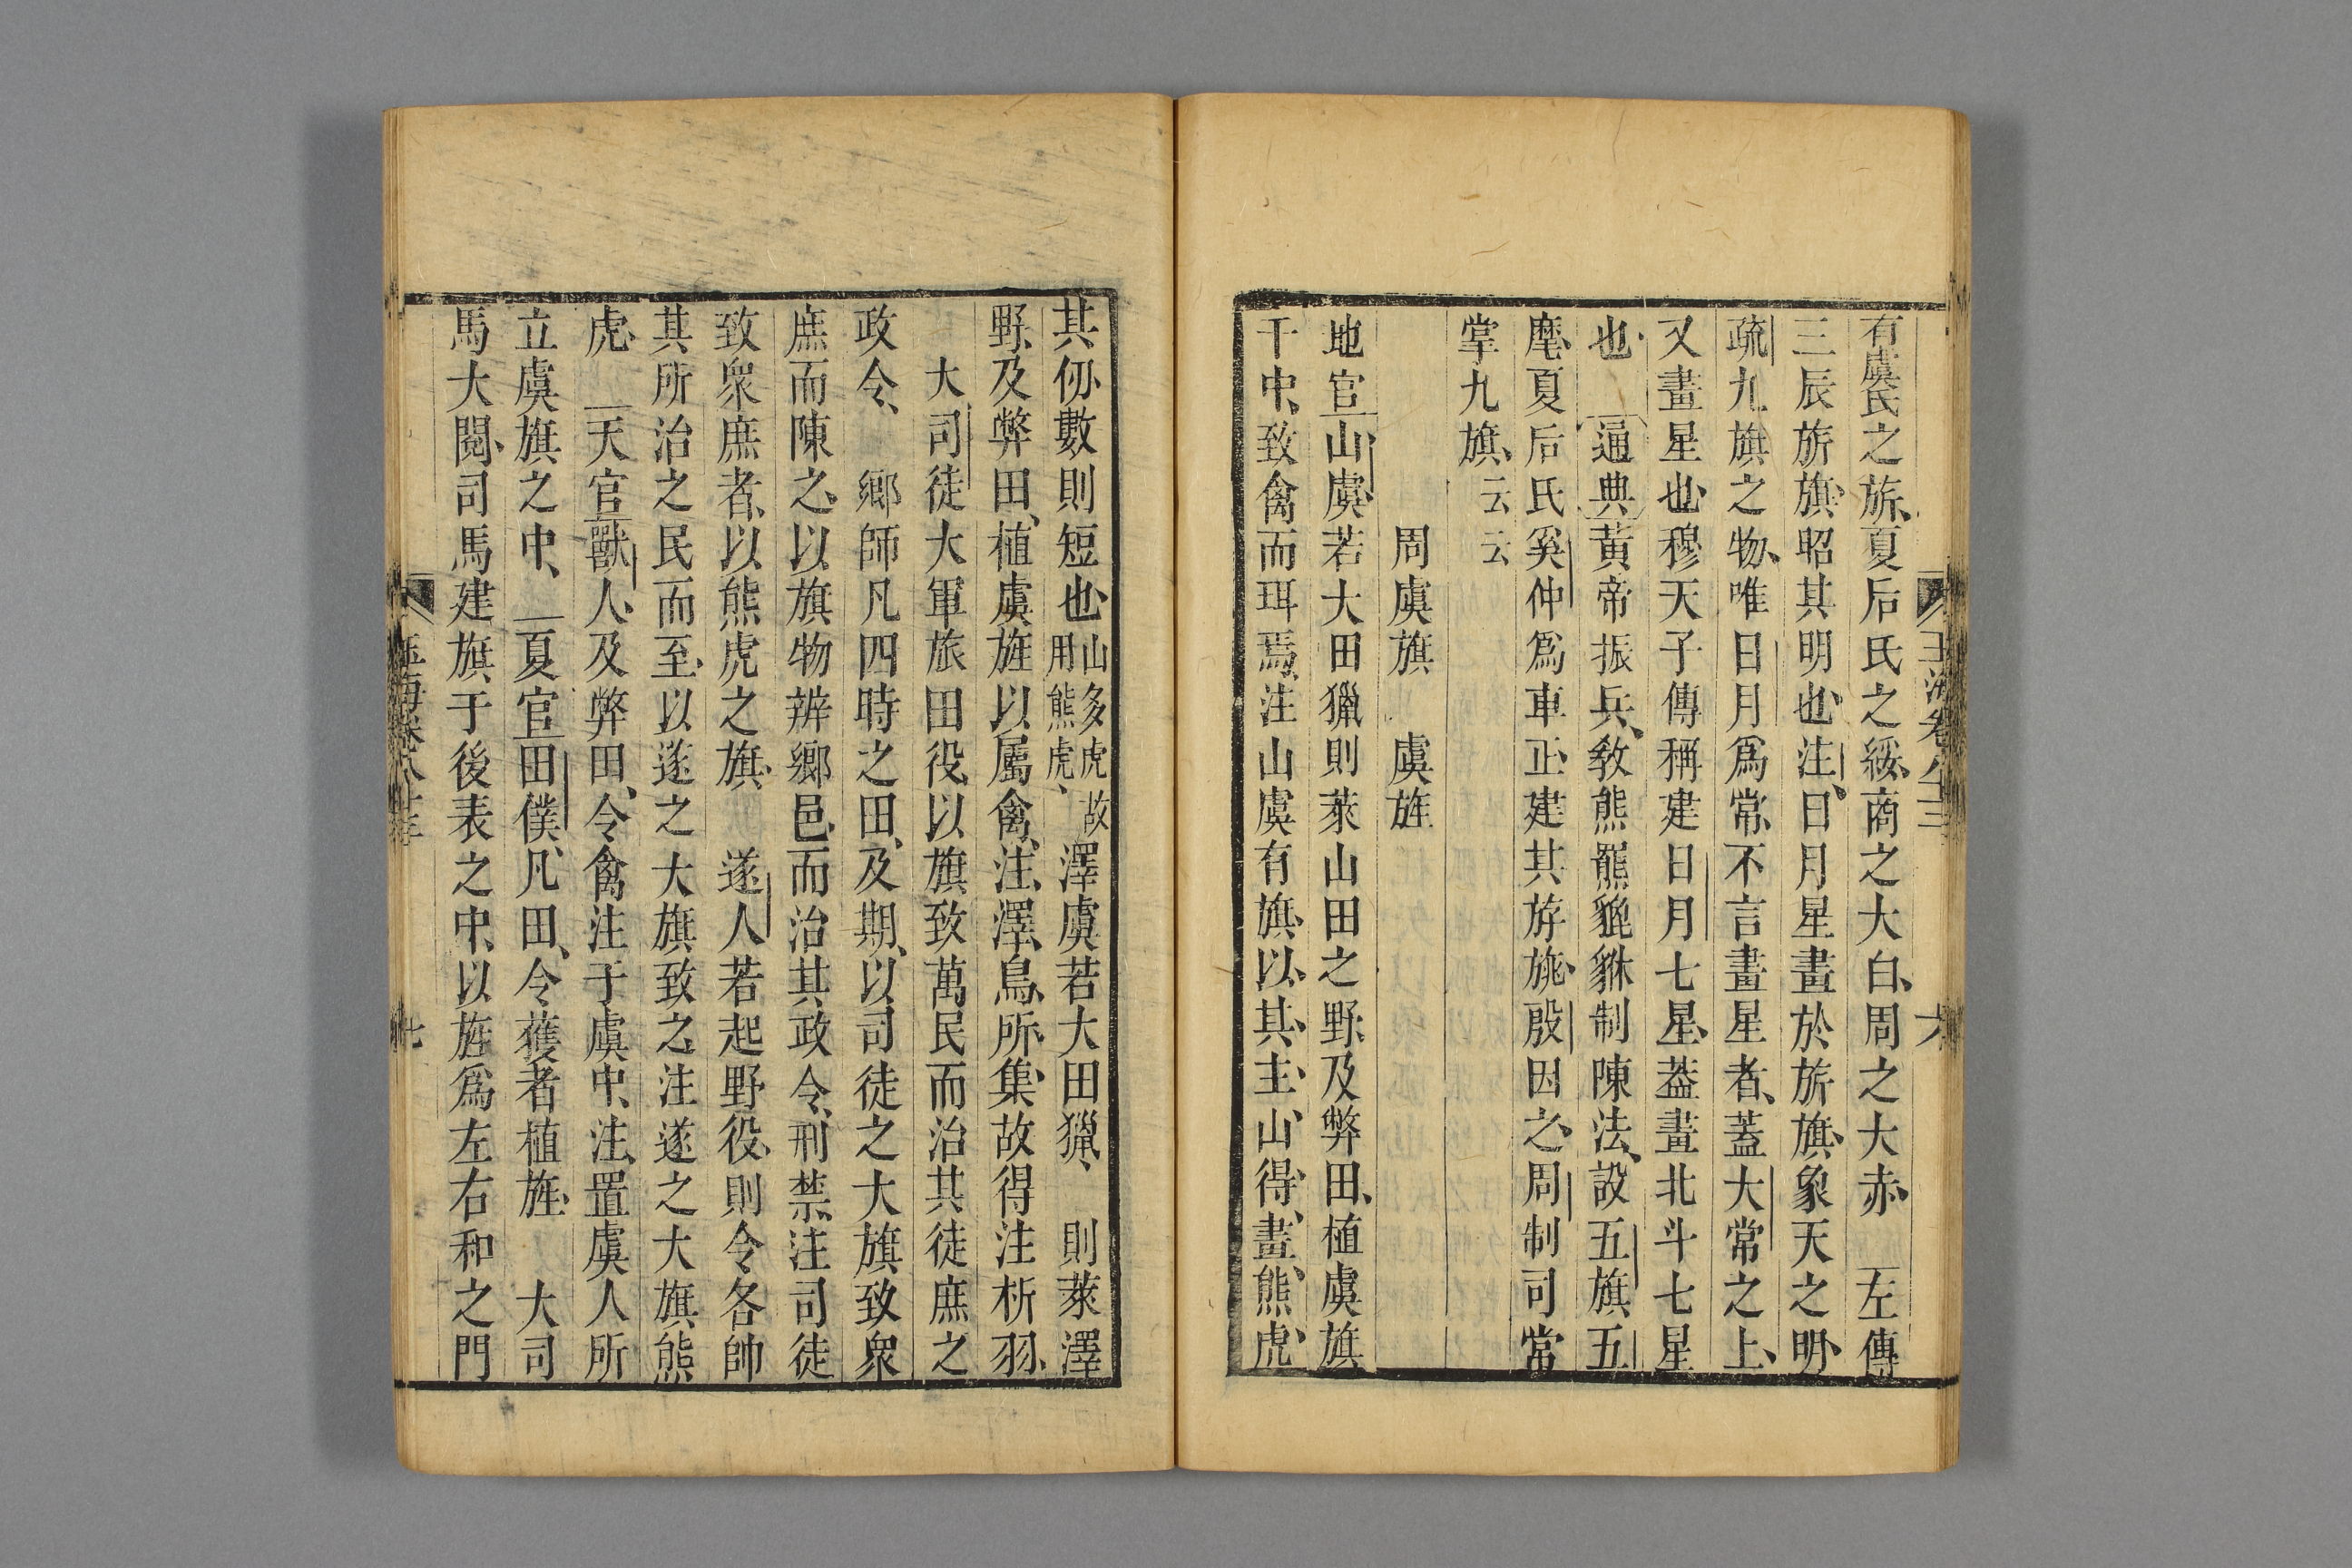 有虞氏之旂、夏后氏之綏、商之大白、周之大赤　左傳
三辰旂旗、昭其明也、注、日月星畫於旂旗、象天之明、
疏九旗之物、唯日月爲常、不言畫星者、蓋大常之上、
又畫星也、穆天子傳稱建日月七星、葢畫北斗七星
也、　通典黃帝振兵、敎熊羆貔貅制陳法、設五旗五
麾、夏后氏奚仲爲車正、建其斿旐、殷因之、周制司常
掌九旗、云云
周虞旗　虞旌
地官山虞、若大田獵則萊山田之野、及弊田、植虞旗
于中、致禽而珥焉、注山虞有旗、以、其、主、山、得、畫、熊、虎、
玉海卷八十三　六
其仞數則短也、山多虎故用熊虎、澤虞若大田獵、則萊澤
野、及弊田、植虞旌以屬禽、注、澤、鳥、所、集、故得注析羽、
大司徒大軍旅田役、以旗致萬民而治其徒庶之
政令、　鄉師凡四時之田、及期、以司徒之大旗致衆
庶而陳之、以旗物辨鄉邑、而治其政令、刑禁、注司徒
致衆庶者、以熊虎之旗、　遂人若起野役、則令各帥
其所治之民而至、以遂之大旗致之、注遂之大旗熊
虎、　天官獸人、及弊田、令禽注于虞中、注、置虞人所
立虞旗之中、　夏官田僕、凡田、令獲者植旌、　大司
馬大閱、司馬建旗、于後表之中、以旌爲左右和之門
玉海卷八十三　七